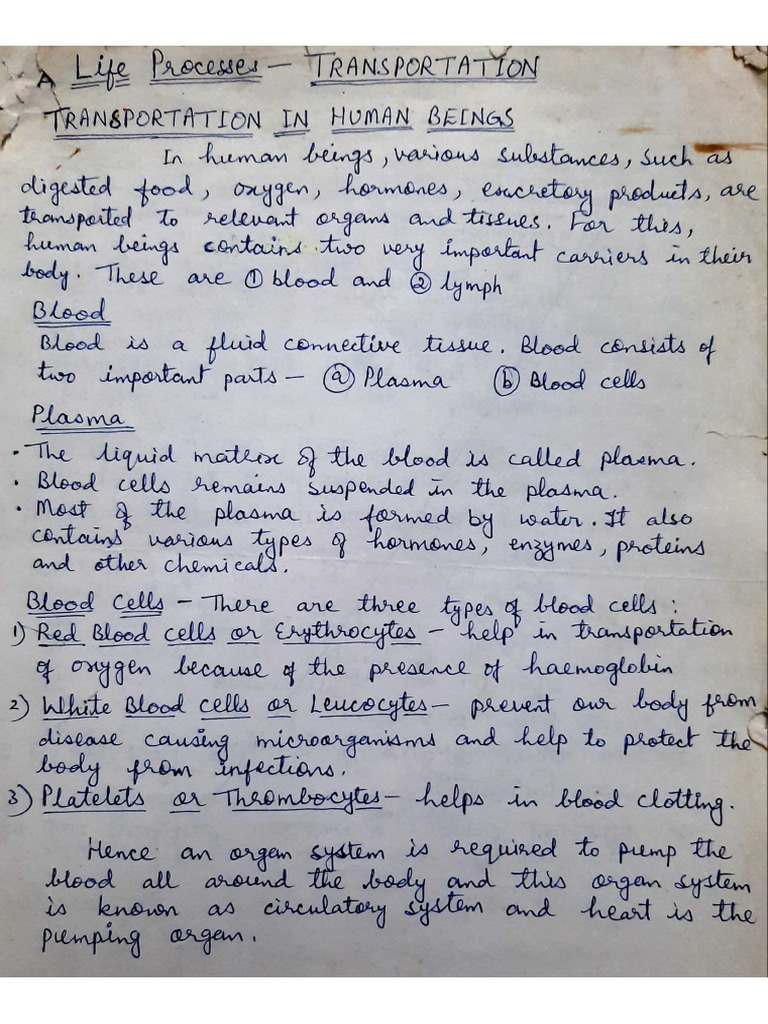 A Life Processes – TRANSPORTATION
TRANSPORTATION IN HUMAN BEINGS
In human beings, various substances, such as
digested food, oxygen, hormones, excretory products, are
transported to relevant organs and tissues. For this,
human beings contains two very important carriers in their
body. These are ① blood and ② lymph
Blood
Blood is a fluid connective tissue. Blood consists of
two important parts – ⓐ Plasma ⓑ Blood cells
Plasma
• The liquid matrix of the blood is called plasma.
• Blood cells remains suspended in the plasma.
• Most of the plasma is formed by water. It also
contains various types of hormones, enzymes, proteins
and other chemicals.
Blood Cells – There are three types of blood cells :
1) Red Blood cells or Erythrocytes – help in transportation
of oxygen because of the presence of haemoglobin
2) White Blood cells or Leucocytes – prevent our body from
disease causing microorganisms and help to protect the
body from infections.
3) Platelets or Thrombocytes – helps in blood clotting.
Hence an organ system is required to pump the
blood all around the body and this organ system
is known as circulatory system and heart is the
pumping organ.